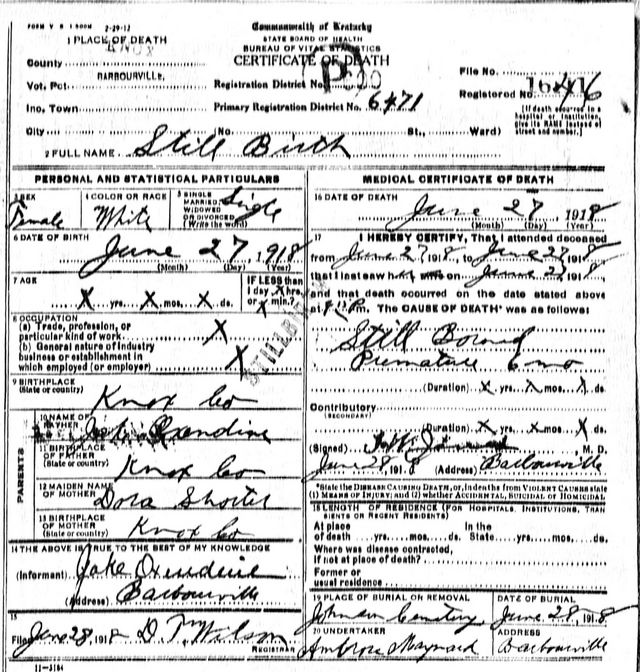 FORM V S 1 500M 2-29-12
Commonwealth of Kentucky
STATE BOARD OF HEALTH
BUREAU OF VITAL STATISTICS
CERTIFICATE OF DEATH
1 PLACE OF DEATH
KNOX
County
BARBOURVILLE,
Vot. Pct.
Registration District No.
File No.
Registered No. 16446
Inc. Town
Primary Registration District No. 6471
[If death occurred in a hospital or institution, give its NAME instead of street and number.]
City (No. St., Ward)
2 FULL NAME Still Birth
PERSONAL AND STATISTICAL PARTICULARS
3 SEX
Female
4 COLOR OR RACE
White
5 SINGLE MARRIED, WIDOWED OR DIVORCED (Write the word)
Single
6 DATE OF BIRTH
June 27, 1918
(Month) (Day) (Year)
7 AGE
IF LESS than 1 day X hrs. or X min.?
X yrs. X mos. X ds.
8 OCCUPATION
(a) Trade, profession, or particular kind of work X
(b) General nature of industry business or establishment in which employed (or employer) X
STILLBORN
9 BIRTHPLACE
(State or country)
Knox Co
PARENTS
10 NAME OF FATHER
Jake Oxendine
11 BIRTHPLACE OF FATHER
(State or country)
Knox Co
12 MAIDEN NAME OF MOTHER
Dora Shorter
13 BIRTHPLACE OF MOTHER
(State or country)
Knox Co
14 THE ABOVE IS TRUE TO THE BEST OF MY KNOWLEDGE
(Informant) Jake Oxendine
(Address) Barbourville
15
Filed June 28, 1918 D. T. Wilson
REGISTRAR
11-3184
MEDICAL CERTIFICATE OF DEATH
16 DATE OF DEATH
June 27 1918
(Month) (Day) (Year)
17 I HEREBY CERTIFY, That I attended deceased
from June 27 1918, to June 27 1918
that I last saw h on June 27 1918
and that death occurred on the date stated above
at P.m. The CAUSE OF DEATH* was as follows:
Still Bornd
Premature 6 mo
(Duration) X yrs. X mos. X ds.
Contributory
(SECONDARY)
(Duration) X yrs. X mos. X ds.
(Signed) M. D.
June 28, 1918 (Address) Barbourville
*State the DISEASE CAUSING DEATH, or, in deaths from VIOLENT CAUSES state (1) MEANS OF INJURY; and (2) whether ACCIDENTAL, SUICIDAL or HOMICIDAL
18 LENGTH OF RESIDENCE (FOR HOSPITALS, INSTITUTIONS, TRANSIENTS OR RECENT RESIDENTS)
At place of death yrs. mos. ds. In the State yrs. mos. ds.
Where was disease contracted,
if not at place of death?
Former or usual residence
19 PLACE OF BURIAL OR REMOVAL
Johnson Cemetery
DATE OF BURIAL
June 28 1918
20 UNDERTAKER
Ambrose Maynard
ADDRESS
Barbourville